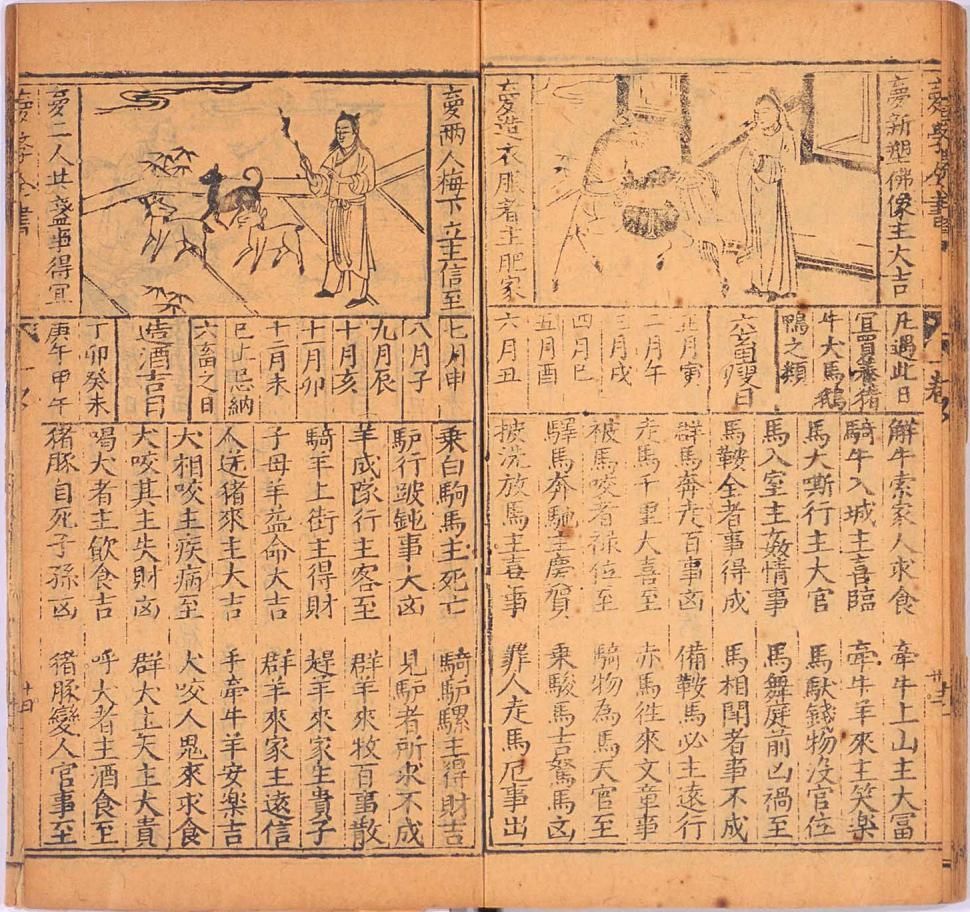 夣新塑佛像主大吉
夣造衣服者主肥家
凡遇此日
宜買養猪
牛犬馬鵝
鴨之類
六畜瘦日
正月寅
二月午
三月戌
四月巳
五月酉
六月丑
解牛索家人求食 牵牛上山主大富
騎牛入城主喜臨 牵牛羊來主笑樂
馬大嘶行主大官 馬馱錢物沒官位
馬入室主姦情事 馬舞庭前凶禍至
馬鞍全者事得成 馬相聞者事不成
群馬奔走百事凶 備鞍馬必主遠行
走馬千里大喜至 赤馬徃來文章事
被馬咬者禄位至 騎物為馬天官至
驛馬奔馳主慶賀 乗駿馬吉駑馬凶
披洗放馬主喜事 罪人走馬厄事出
夣两人梅下立主信至
夣二人共盞事得宜
七月申
八月子
九月辰
十月亥
十一月卯
十二月未
巳上忌納
六畜之日
造酒吉日
丁卯癸未
庚午甲午
乘白駒馬主死亡 騎驢騾主得財吉
驴行跛鈍事大凶 見驴者所求不成
羊成隊行主客至 群羊來牧百事散
騎羊上街主得財 趕羊來家生貴子
子母羊益命大吉 群羊來家主遠信
人送猪來主大吉 手牽牛羊安樂吉
犬相咬主疾病至 犬咬人鬼來求食
犬咬其主失財凶 群犬主大貴
喝犬者主飲食吉 呼犬者主酒食至
猪豚自死子孫凶 猪豚變人官事至
十四